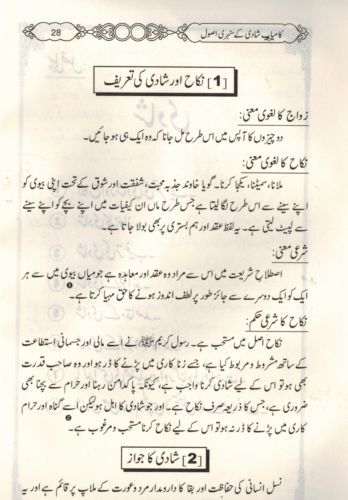 کامیاب شادی کے سنہری اصول
28
[1] نکاح اور شادی کی تعریف
زواج کا لغوی معنی:
دو چیزوں کا آپس میں اس طرح مل جانا کہ وہ ایک ہی ہو جائیں۔
نکاح کا لغوی معنی:
ملانا، سمیٹنا، یکجا کرنا۔ گویا خاوند جذبۂ محبت، شفقت اور شوق کے تحت اپنی بیوی کو
اپنے سینے سے اس طرح لگا لیتا ہے جس طرح ماں ان کیفیات میں اپنے بچے کو اپنے سینے
سے لپیٹ لیتی ہے۔ یہ لفظ عقد اور ہم بستری پر بھی بولا جاتا ہے۔
شرعی معنی:
اصطلاحِ شریعت میں اس سے مراد وہ عقد اور معاہدہ ہے جو میاں بیوی میں سے ہر
ایک کو ایک دوسرے سے جائز طور پر لطف اندوز ہونے کا حق مہیا کرتا ہے۔
نکاح کا شرعی حکم:
نکاح اصل میں مستحب ہے۔ رسول کریم ﷺ نے اسے مالی اور جسمانی استطاعت
کے ساتھ مشروط و مربوط کیا ہے، جسے زنا کاری میں پڑنے کا ڈر ہو اور وہ صاحب قدرت
بھی ہو تو اس کے لیے شادی کرنا واجب ہے، کیونکہ پاکدامن رہنا اور حرام سے بچنا بھی
ضروری ہے، جس کا ذریعہ صرف نکاح ہے۔ اور جو شادی کا اہل ہو لیکن اسے گناہ اور حرام
کاری میں پڑنے کا ڈر نہ ہو تو اس کے لیے نکاح کرنا مستحب و مرغوب ہے۔
[2] شادی کا جواز
نسل انسانی کی حفاظت اور بقا کا دارومدار مرد و عورت کے ملاپ پر قائم ہے اور یہ